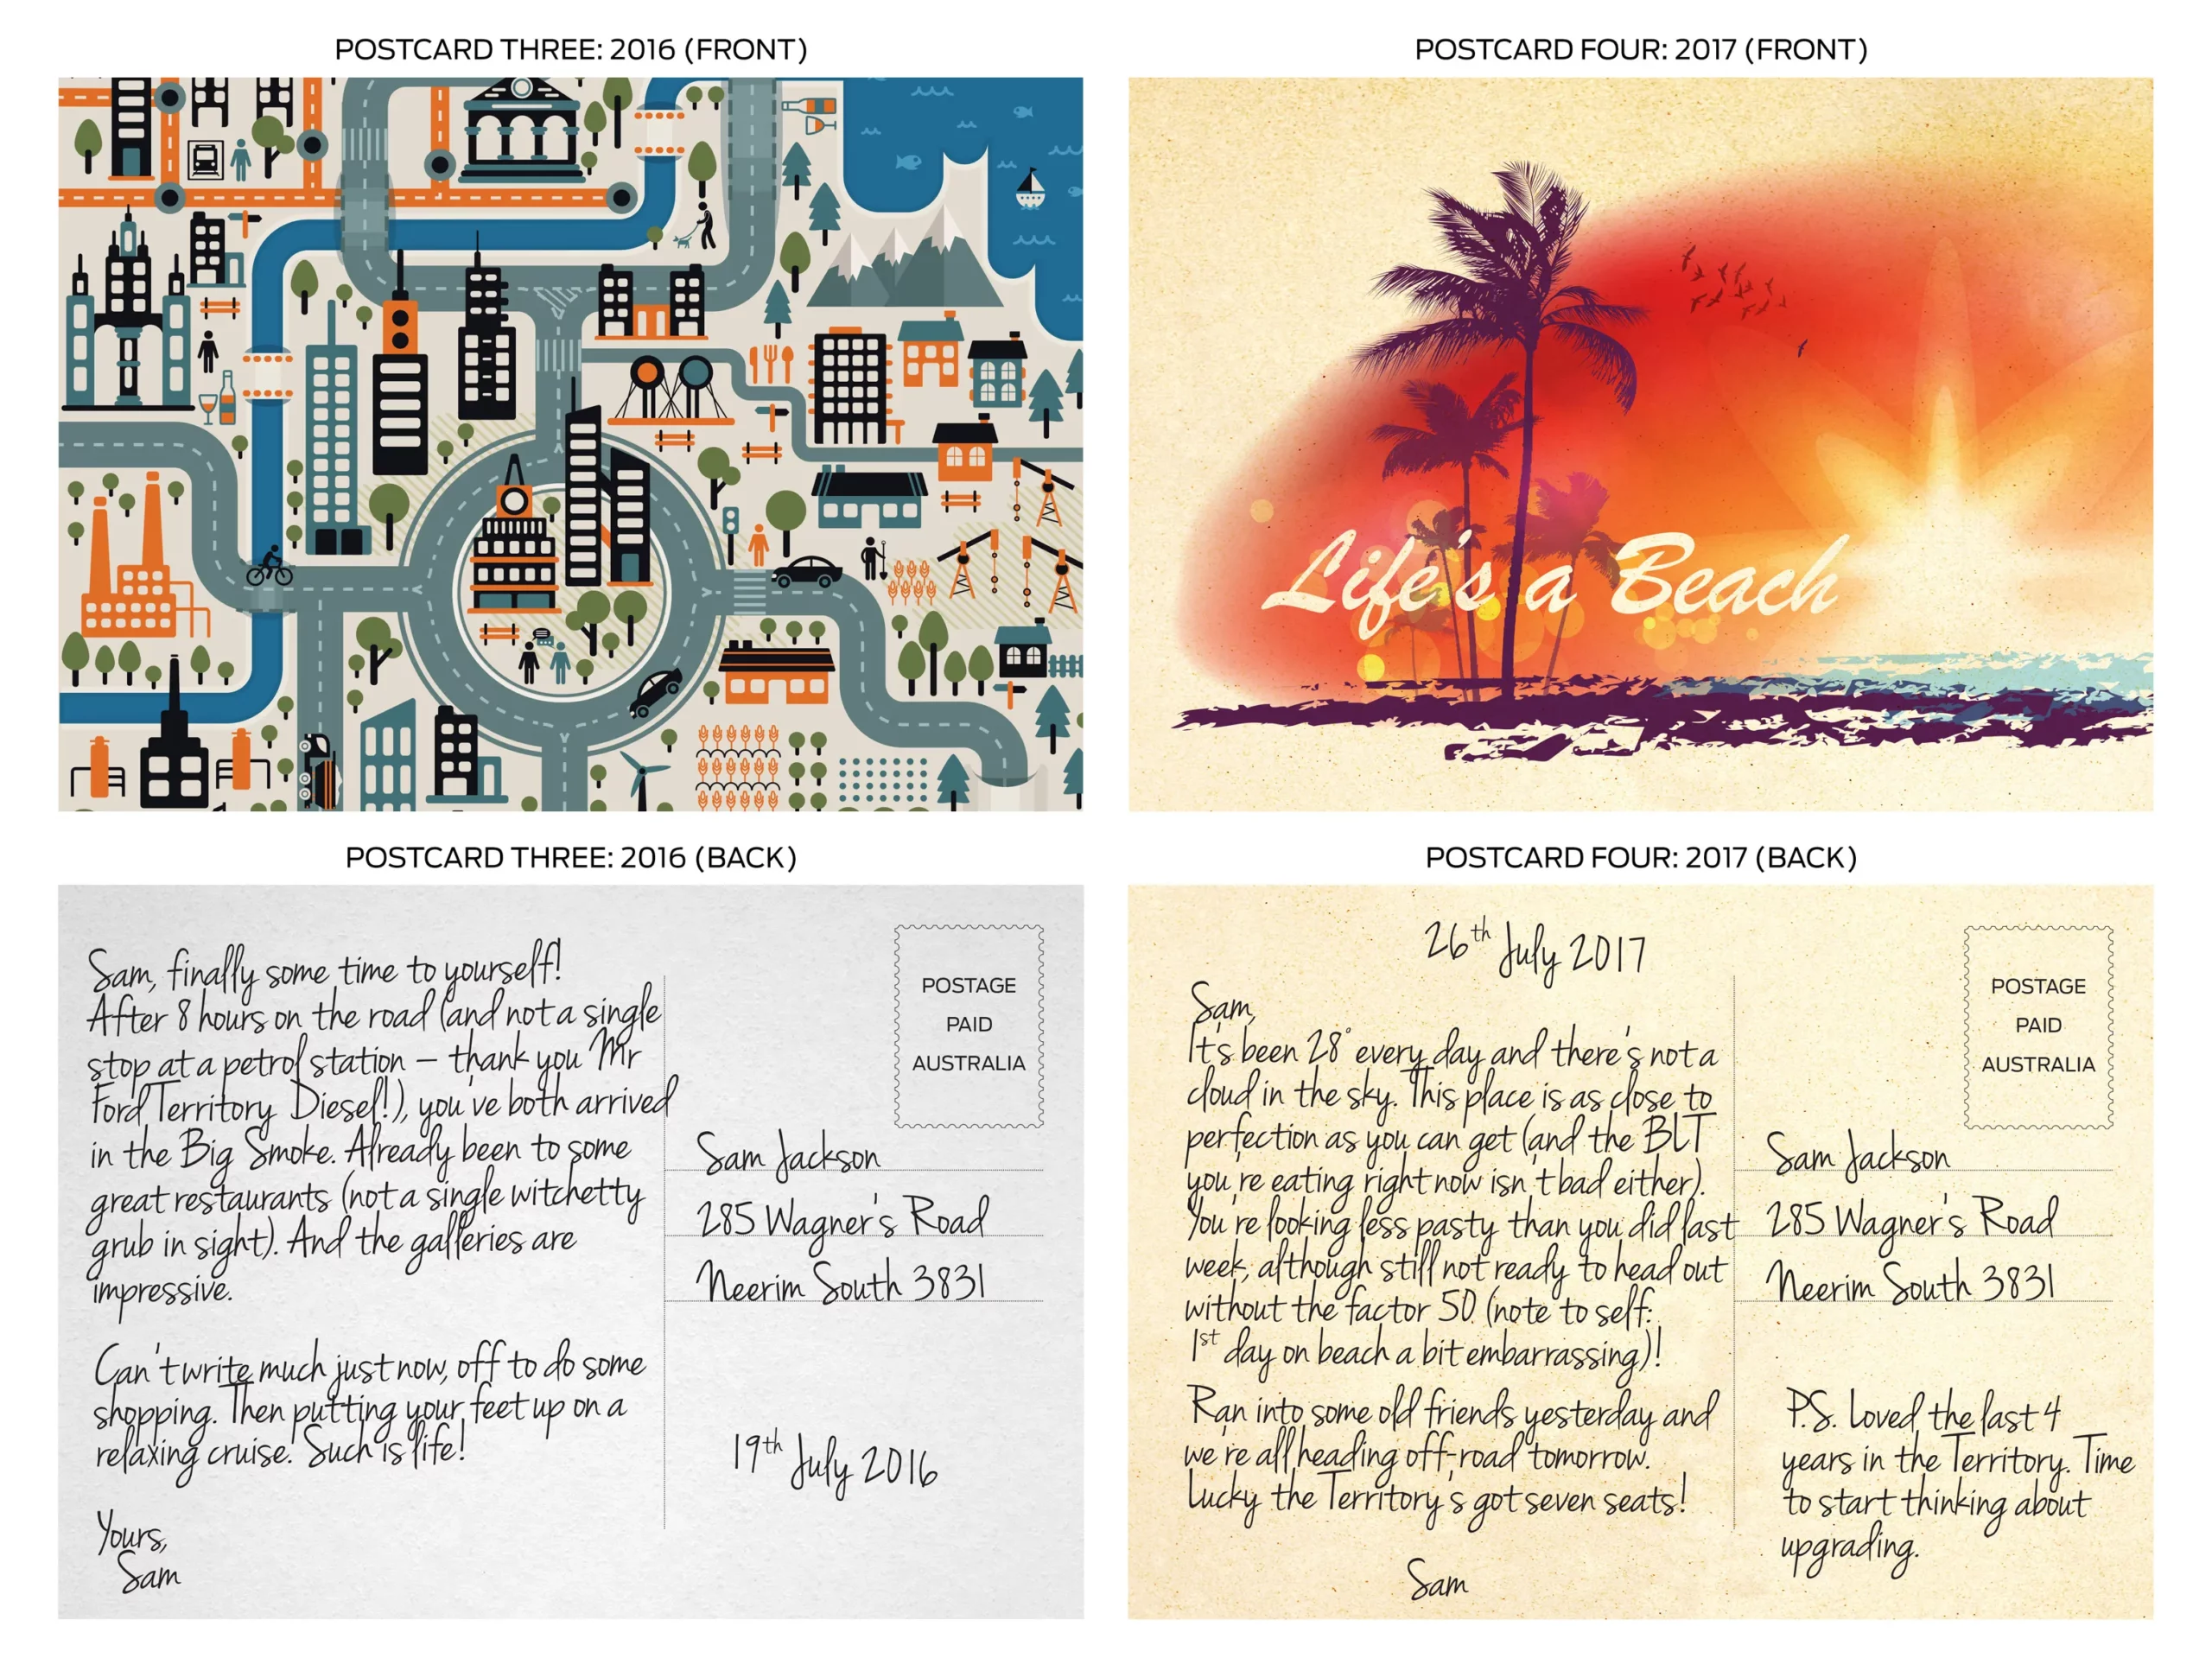 POSTCARD THREE: 2016 (FRONT)
POSTCARD FOUR: 2017 (FRONT)
Life's a Beach
POSTCARD THREE: 2016 (BACK)
Sam, finally some time to yourself!
After 8 hours on the road (and not a single
stop at a petrol station – thank you Mr
Ford Territory Diesel!), you've both arrived
in the Big Smoke. Already been to some
great restaurants (not a single witchetty
grub in sight). And the galleries are
impressive.
Can't write much just now, off to do some
shopping. Then putting your feet up on a
relaxing cruise. Such is life!
Yours,
Sam
POSTAGE
PAID
AUSTRALIA
Sam Jackson
285 Wagner's Road
Neerim South 3831
19th July 2016
POSTCARD FOUR: 2017 (BACK)
26th July 2017
Sam,
It's been 28° every day and there's not a
cloud in the sky. This place is as close to
perfection as you can get (and the BLT
you're eating right now isn't bad either).
You're looking less pasty than you did last
week, although still not ready to head out
without the factor 50 (note to self:
1st day on beach a bit embarrassing)!
Ran into some old friends yesterday and
we're all heading off-road tomorrow.
Lucky the Territory's got seven seats!
Sam
POSTAGE
PAID
AUSTRALIA
Sam Jackson
285 Wagner's Road
Neerim South 3831
P.S. Loved the last 4
years in the Territory. Time
to start thinking about
upgrading.